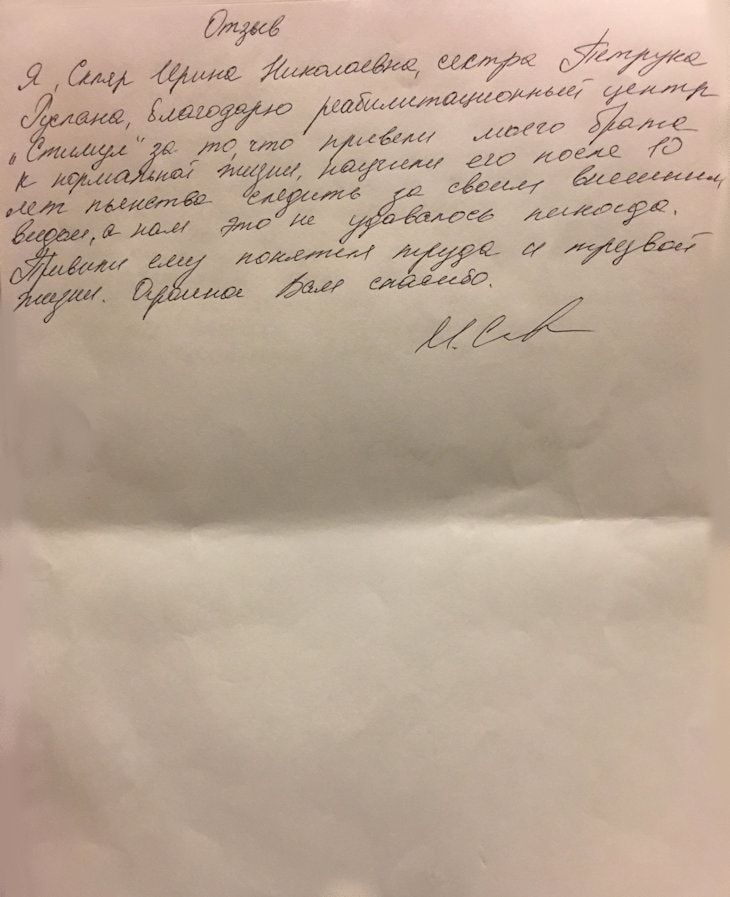 Отзыв
Я, Скляр Ирина Николаевна, сестра Петрука
Руслана, благодарю реабилитационный центр
„Стимул" за то, что привели моего брата
к нормальной жизни, научили его после 10
лет пьянства следить за своим внешним
видом, а нам это не удавалось никогда.
Привили ему понятия труда и трезвой
жизни. Огромное Вам спасибо.